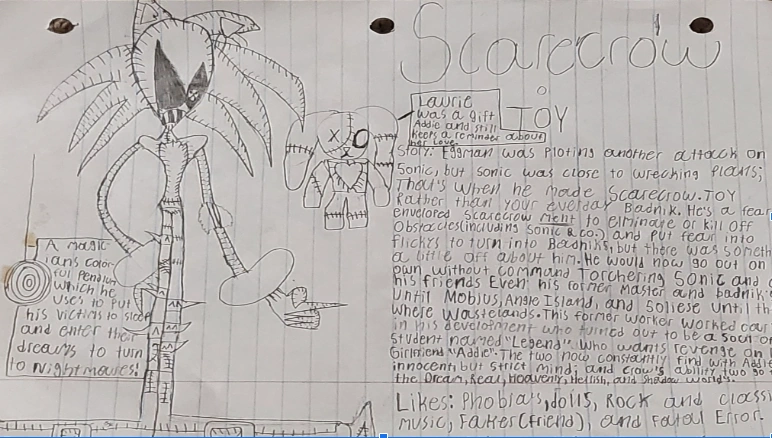 Scarecrow
. TOY
Laurie
was a gift
Addie and still
keeps a reminder about
her love.
Story: Eggman was Ploting another attacck on
Sonic, but Sonic was close to wrecking Plants;
That's when he made Scarecrow.TOY
Rather than your everday Badnik. He's a fear
envelored Scarecrow ment to elminare or kill off
Obstacles(including Sonic & co.) and Put fear into
flickes to turn into Beadniks, but there was someth
a little off about him. He would now go out on
own without command Torchering Sonic and
his friends Even his former Master and badnik
Until Mobius, Angle Island, and Soliese Until th
where Wastelands. This former worker worked
in his develotment who turned out to be a
Student named "Legend" who wants revenge on
Girlfriend "Addie". The two now constantly find with Addie
innocent but strict mind; and crow's ability two go
the Dream, Real, Heavenly, Hellish, and Shadow world's.
Likes: Phobia's, dolls, Rock and classi
music, Father(friend), and Fatal Error.
A magic
ians color-
ful Pendun
which he
uses to put
his victims to sleep
and enter their
dreams to turn
to Nightmares!